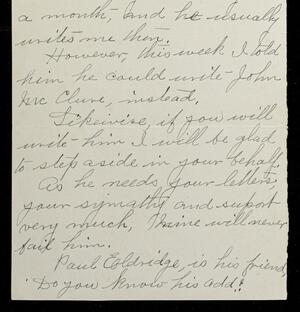 a month, and he usually
writes me then.
However, this week I told
him he could write John
Mc Clure, instead.
Likewise, if you will
write him I will be glad
to step aside in your behalf.
As he needs your letters,
your symathy and suport
very much, Mine will never
fail him.
Paul Eldridge, is his friend,
Do you know his add?